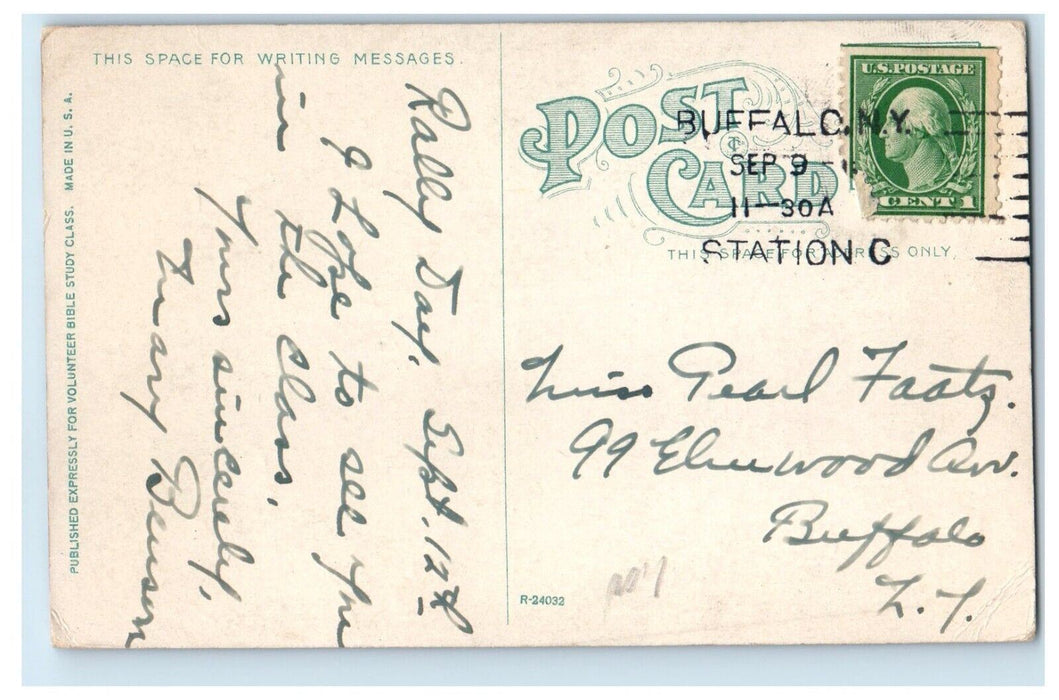 THIS SPACE FOR WRITING MESSAGES.
Rally Day. Sept. 12th
I hope to see you
in the class.
Yours sincerely,
Mary Benson
PUBLISHED EXPRESSLY FOR VOLUNTEER BIBLE STUDY CLASS. MADE IN U. S. A.
POST CARD
U.S. POSTAGE
CENT 1
BUFFALO, N.Y.
SEP 9
11-30A
STATION C
THIS SPACE FOR ADDRESS ONLY.
Miss Pearl Faatz.
99 Elmwood Av.
Buffalo
N.Y.
R-24032